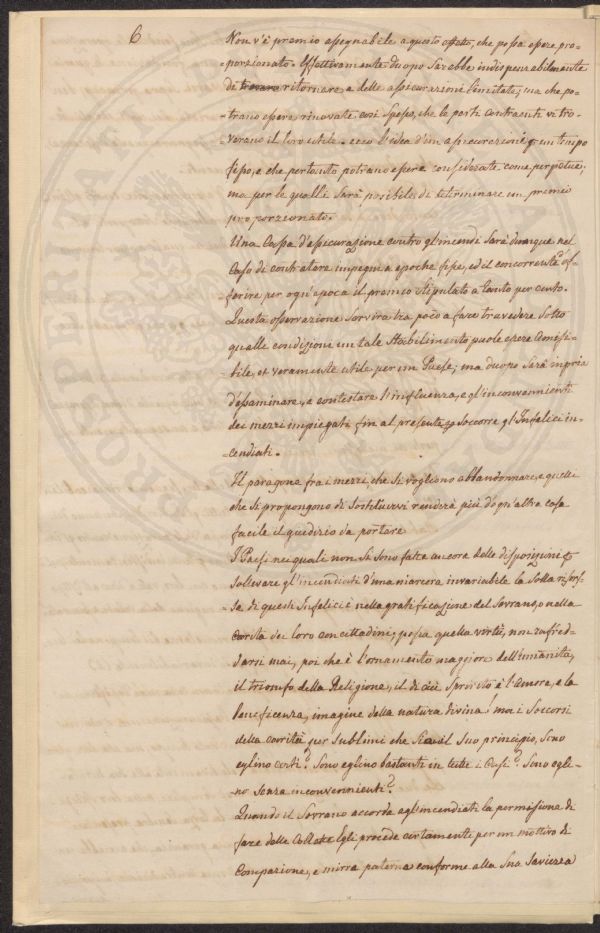 6
Non v'è premio assegnabile a questo effetto, che possa essere pro=
=porzionato. Effettivamente duopo sarebbe indispensabilmente
di trovare ritornare a delle assicurazioni limitate; ma che po=
=trano essere rinovate così spesso, che le parti contraenti vi tro=
=verano il loro utile. ecco l'idea d'un assecorazione p un tempo
fisso, e che pertanto potrano essere considerate come perpetue;
ma per le qualli sarà possibile di determinare un premio
proporzionato.
Una Cassa d'assicurazione contro gl'incendi sarà dunque nel
Caso di contratare impegni a epoche fisse, ed il concorrente d'of=
=ferire per ogn'epoca il premio stipulato a tanto per cento.
Questa osservazione servira tra poco a fare travedere sotto
qualle condizione un tale stabilimento puole essere amesi=
=bile, et veramente utile per un Paese; ma duopo sarà in pria
d'essaminare, e contestare l'influenza, e gl'inconvennienti
dei mezzi impiegati fin al presente p soccorre gl'Infelici in=
=cendiati.
Il paragone fra i mezzi, che si vogliono abbandonnare, e quelli
che si propongono di sostituirvi renderà più d'ogn'altra cosa
facile il giudizio da portare
I Paesi nei quali non si sono fatte ancora delle disposizioni p
sollevare gl'incendiati d'una maniera invariabile la solla risor=
=sa di questi Infelici è nella gratificazione del Sovrano, o nella
carità dei loro concittadini; possa quella virtù, non rafred=
=darsi mai, poi che è l'ornamento maggiore dell'umanità,
il trionfo della Religione, il di cui spirito è l'amore, e la
beneficenza, imagine della natura divina! ma i soccorsi
della carità per sublimi che sia il suo principio, sono
eglino certi? Sono eglino bastanti in tutti i Casi? Sono egli=
=no senza inconvennienti?
Quando il Sovrano accorda agl'incendiati la permissione di
fare delle Collate Egli procede certamente per un mottivo di
Compasione, e mirra paterna conforme alla sua saviezza
PROSPERITATI